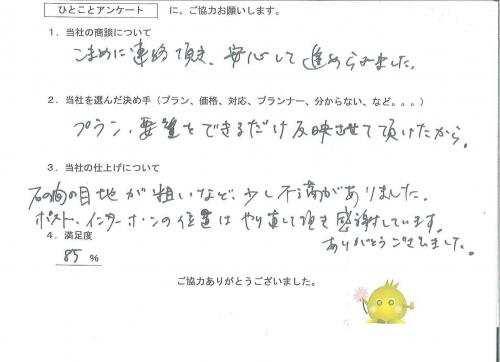 ひとことアンケート に、ご協力お願いします。
1．当社の商談について
こまめに連絡頂き、安心して進められました。
2．当社を選んだ決め手（プラン、価格、対応、プランナー、分からない、など。。。）
プラン、要望をできるだけ反映させて頂けたから。
3．当社の仕上げについて
石の間の目地が粗いなど、少し不満がありました。
ポスト、インターホンの位置はやり直して頂き感謝しています。
ありがとうございました。
4．満足度
85 %
ご協力ありがとうございました。